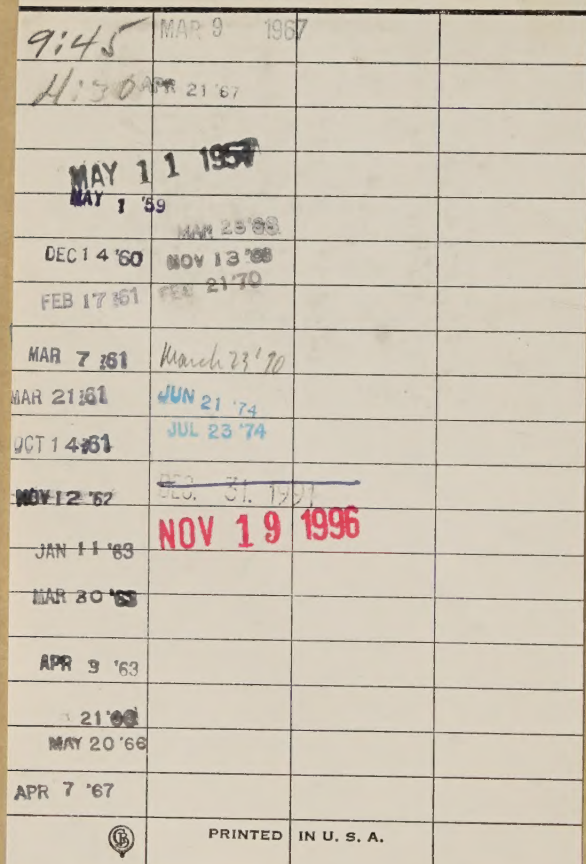 9:45
4:30
MAY 11 1957
MAY 1 '59
DEC 14 '60
FEB 17 '61
MAR 7 '61
MAR 21 '61
OCT 14 '61
NOV 12 '62
JAN 11 '63
MAR 30
APR 9 '63
21
MAY 20 '66
APR 7 '67
MAR 9 1967
APR 21 '67
MAR 25 '68
NOV 13 '68
FEB 21 '70
March 23 '70
JUN 21 '74
JUL 23 '74
DEC. 31. 1991
NOV 19 1996
PRINTED IN U. S. A.